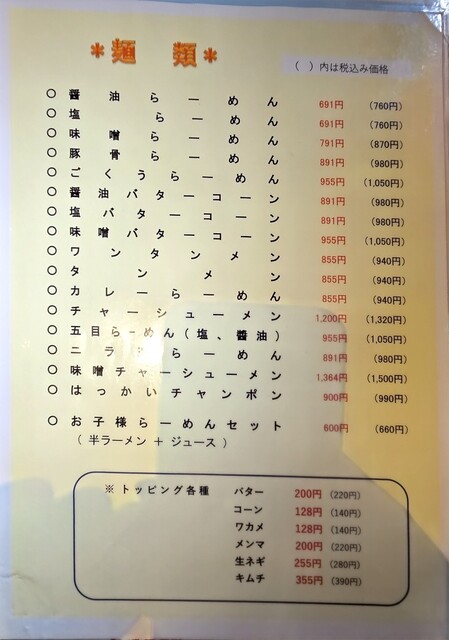 *麺 類*
（ ）内は税込み価格
○ 醤油らーめん 691円 （760円）
○ 塩らーめん 691円 （760円）
○ 味噌らーめん 791円 （870円）
○ 豚骨らーめん 891円 （980円）
○ ごくうらーめん 955円 （1,050円）
○ 醤油バターコーン 891円 （980円）
○ 塩バターコーン 891円 （980円）
○ 味噌バターコーン 955円 （1,050円）
○ ワンタンメン 855円 （940円）
○ タンメン 855円 （940円）
○ カレーらーめん 855円 （940円）
○ チャーシューメン 1,200円 （1,320円）
○ 五目らーめん（塩、醤油） 955円 （1,050円）
○ ニラらーめん 891円 （980円）
○ 味噌チャーシューメン 1,364円 （1,500円）
○ はっかいチャンポン 900円 （990円）
○ お子様らーめんセット 600円 （660円）
（半ラーメン＋ジュース）
※トッピング各種 バター 200円（220円）
コーン 128円（140円）
ワカメ 128円（140円）
メンマ 200円（220円）
生ネギ 255円（280円）
キムチ 355円（390円）